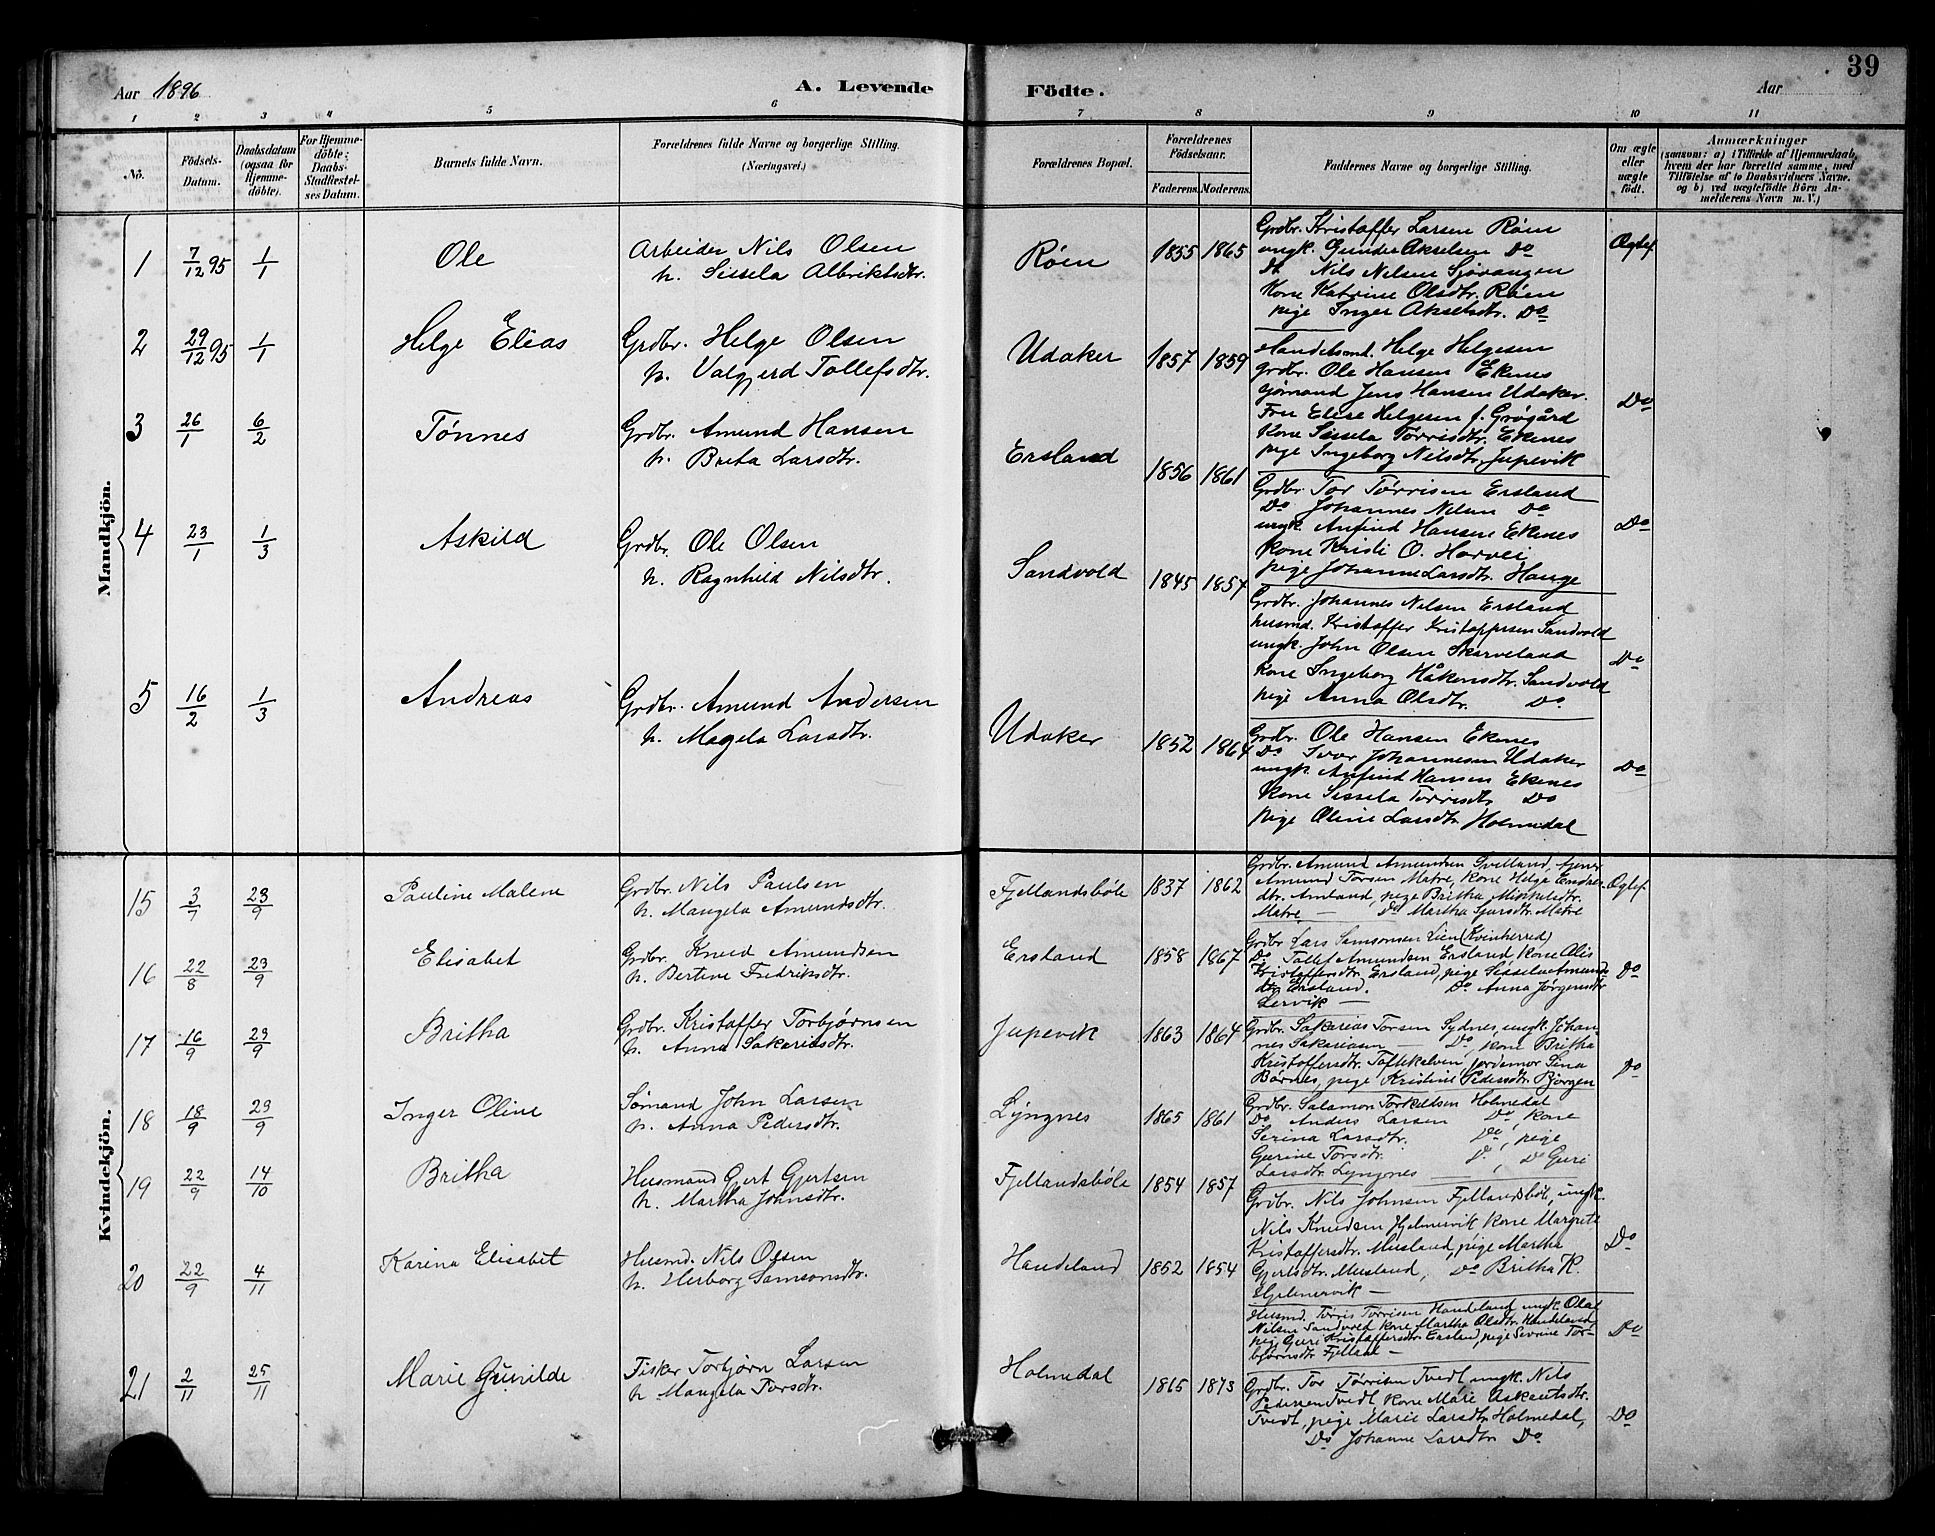 39
Aar 1896
A. Levende Födte.
Aar
1 2 3 4 5 6 7 8 9 10 11
No.
Födsels-Datum.
Daabsdatum (ogsaa for Hjemme-döbte).
For Hjemme-döbte; Daabs-Stadfæstel-ses Datum.
Barnets fulde Navn.
Forældrenes fulde Navne og borgerlige Stilling. (Næringsvei.)
Forældrenes Bopæl.
Forældrenes Födselsaar.
Faderens. Moderens.
Faddernes Navne og borgerlige Stilling.
Om ægte eller uægte födt.
Anmærkninger
(saasom: a) i Tilfælde af Hjemmedaab, hvem der har forrettet samme, med Tilföielse af to Daabsvidners Navne, og b) ved uægtefödte Börn An-melderens Navn m. V.)
Mandkjön.
1 7/12 95 1/1 Ole Arbeider Nils Olsen
h. Sissela Albriktsdtr. Røen 1855 1865
Grdbr. Kristaffer Larsen Røen
ungk. Gunder Akselsen Do
Do Nils Nelsen Sjøvangen
Kone Katrine Olsdtr. Røen
pige Inger Akselsdtr. Do
Ægtef.
2 29/12 95 1/1 Helge Elias Grdbr. Helge Olsen
h. Valgjerd Tollefsdtr. Udaker 1857 1859
Handelsmd. Helge Helgesen
Grdbr. Ole Hansen Ekenes
sjømand Jens Hansen Udaker.
Fru Elise Helgesen f. Grøgård
Kone Sissela Tørrisdtr. Ekenes
pige Ingeborg Nilsdtr. Jupevik
Do
3 26/1 6/2 Tønnes Grdbr. Amund Hansen
h. Breta Larsdtr. Ersland 1856 1861
Grdbr. Tor Tørrisen Ersland
Do Johannes Nelsen Do
ungk. Anfind Hansen Ekenes
Kone Kristi O. Horvei
pige Johanne Larsdtr. Hauge
Do
4 23/1 1/3 Askild Grdbr. Ole Olsen
h. Ragnhild Nilsdtr. Sandvold 1845 1857
Grdbr. Johannes Nilsen Ersland
husmd. Kristaffer Kristoffersen Sandvold
ungk. John Olsen Skarveland
Kone Ingeborg Håkensdtr. Sandvold
pige Anna Olsdtr. Do
Do
5 16/2 1/3 Andreas Grdbr. Amund Andersen
h. Magela Larsdtr. Udaker 1852 1864
Grdbr. Ole Hansen Ekenes
Do Ivar Johannesen Udaker
ungk. Anfind Hansen Ekenes
Kone Sissela Tørrisdtr Do
pige Oline Larsdtr Holmedal
Do
Kvindekjön.
15 3/7 23/9 Pauline Malene Grdbr. Nils Paulsen
h. Mangela Amundsdtr. Fjellandsbøle 1837 1862
Grdbr. Amund Amundsen Svelland, tjener
Amund Torsen Matre, Kone Helga
dtr. Amland, pige Britha Mikkelsdtr.
Matre — Do Martha Matre
Ægtef.
16 22/8 23/9 Elisabet Grdbr. Knud Amundsen
h. Bertine Fredriksdtr. Ersland 1858 1867
Grdbr. Lars Samsonsen Lien (Kvinherred)
Do Tollef Amundsen Ersland, Kone Alis
Kristoffersdtr. Ersland, pige Sissela Amunds
dtr Ersland. Do Anna Jørgensdtr
Lervik —
Do
17 16/9 23/9 Britha Grdbr. Kristaffer Torbjørnsen
h. Anna Sakariasdtr. Jupevik 1863 1864
Grdbr. Sakarias Torsen Sydnes, ungk. Johan-
nes Sakariasen — Do, Kone Britha
Kristoffersdtr. Toftekalven, jordemor Sina
Børnes, pige Kristine Pedersdtr. Bjørgen
Do
18 18/9 23/9 Inger Oline Sømand John Larsen
h. Anna Pedersdtr. Lyngnes 1865 1861
Grdbr. Salamon Torkeldsen Holmedal
Do Anders Larsen Do, Kone
Serina Larsdtr. Do, pige
Gurine Torsdtr. Do, Do Guri
Larsdtr. Lyngnes —
19 22/9 14/10 Britha Husmand Gjert Gjertsen
h. Martha Johnsdtr. Fjellandsbøle 1854 1857
Grdbr. Nils Johnsen Fjellandsbøl, ungk.
Nils Knudsen Hjelmervik Kone Margrete
Kristoffersdtr. Musland, pige Martha
Gjertsdtr. Musland, Do Britha K.
Hjelmervik —
Do
20 22/9 4/11 Karina Elisabet Husmd. Nils Olsen
h. Herborg Samsonsdtr. Handeland 1852 1854
Husmd. Tørris Tørrisen Handeland ungk. Olai
Nilsen Sandvold Kone Martha Olsdtr. Handeland,
pig. Guri Kristoffersdtr. Ersland, pige Sevrine Tor-
bjørnsdtr. —
Do
21 2/11 25/11 Marie Gunilde Fisker Torbjørn Larsen
h. Mangela Torsdtr. Holmedal 1865 1873
Grdbr. Tor Tørrisen Tvedt, ungk. Nils
Pedersen Tvedt Kone Mari
Tvedt, pige Marie Larsdtr. Holmedal,
Do Johanne Larsdtr Do
Do